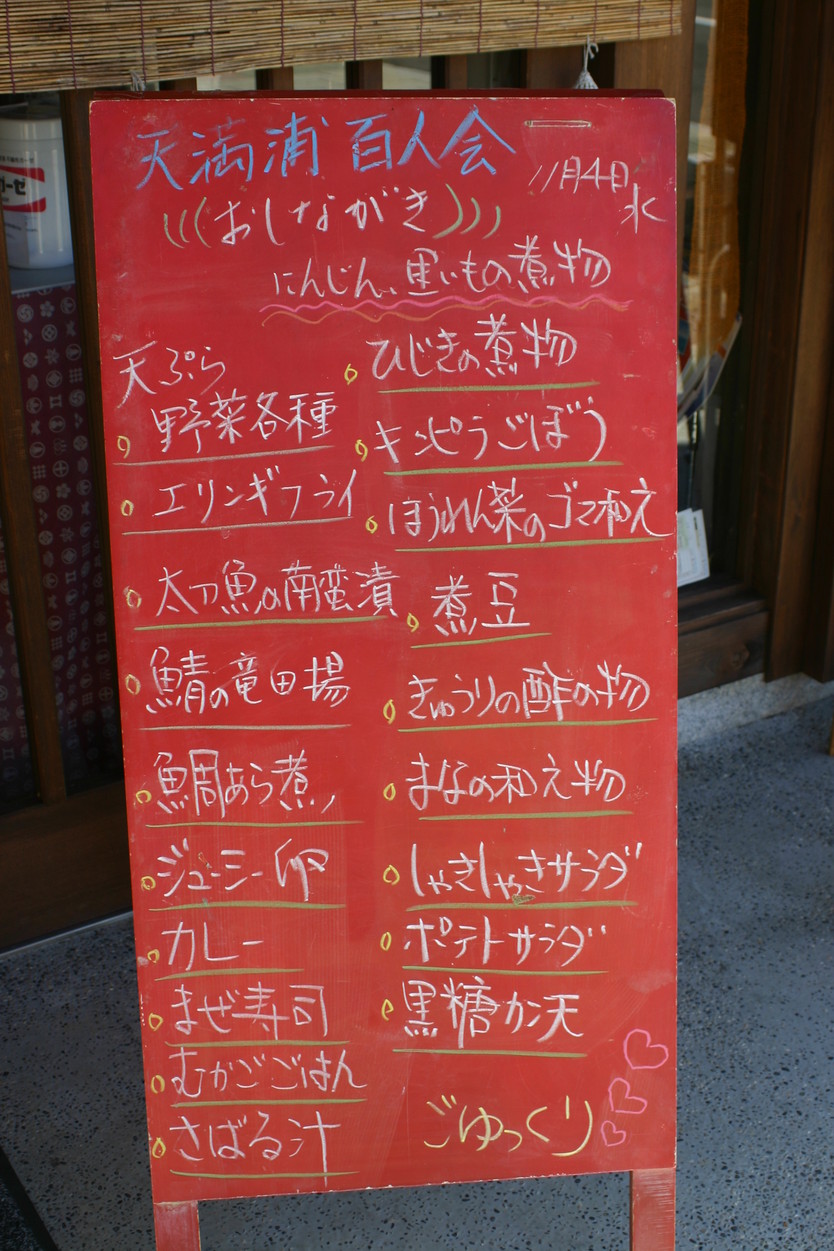 天満浦百人会
11月4日
水
おしながき
にんじん、里いもの煮物
天ぷら
野菜各種
エリンギフライ
太刀魚の南蛮漬
鯖の竜田場
鯛あら煮
ジューシー卵
カレー
まぜ寿司
むかごごはん
さばる汁
ひじきの煮物
キンピラごぼう
ほうれん菜のゴマ和え
煮豆
きゅうりの酢の物
まなの和え物
しゃきしゃきサラダ
ポテトサラダ
黒糖カン天
ごゆっくり
ガーゼ